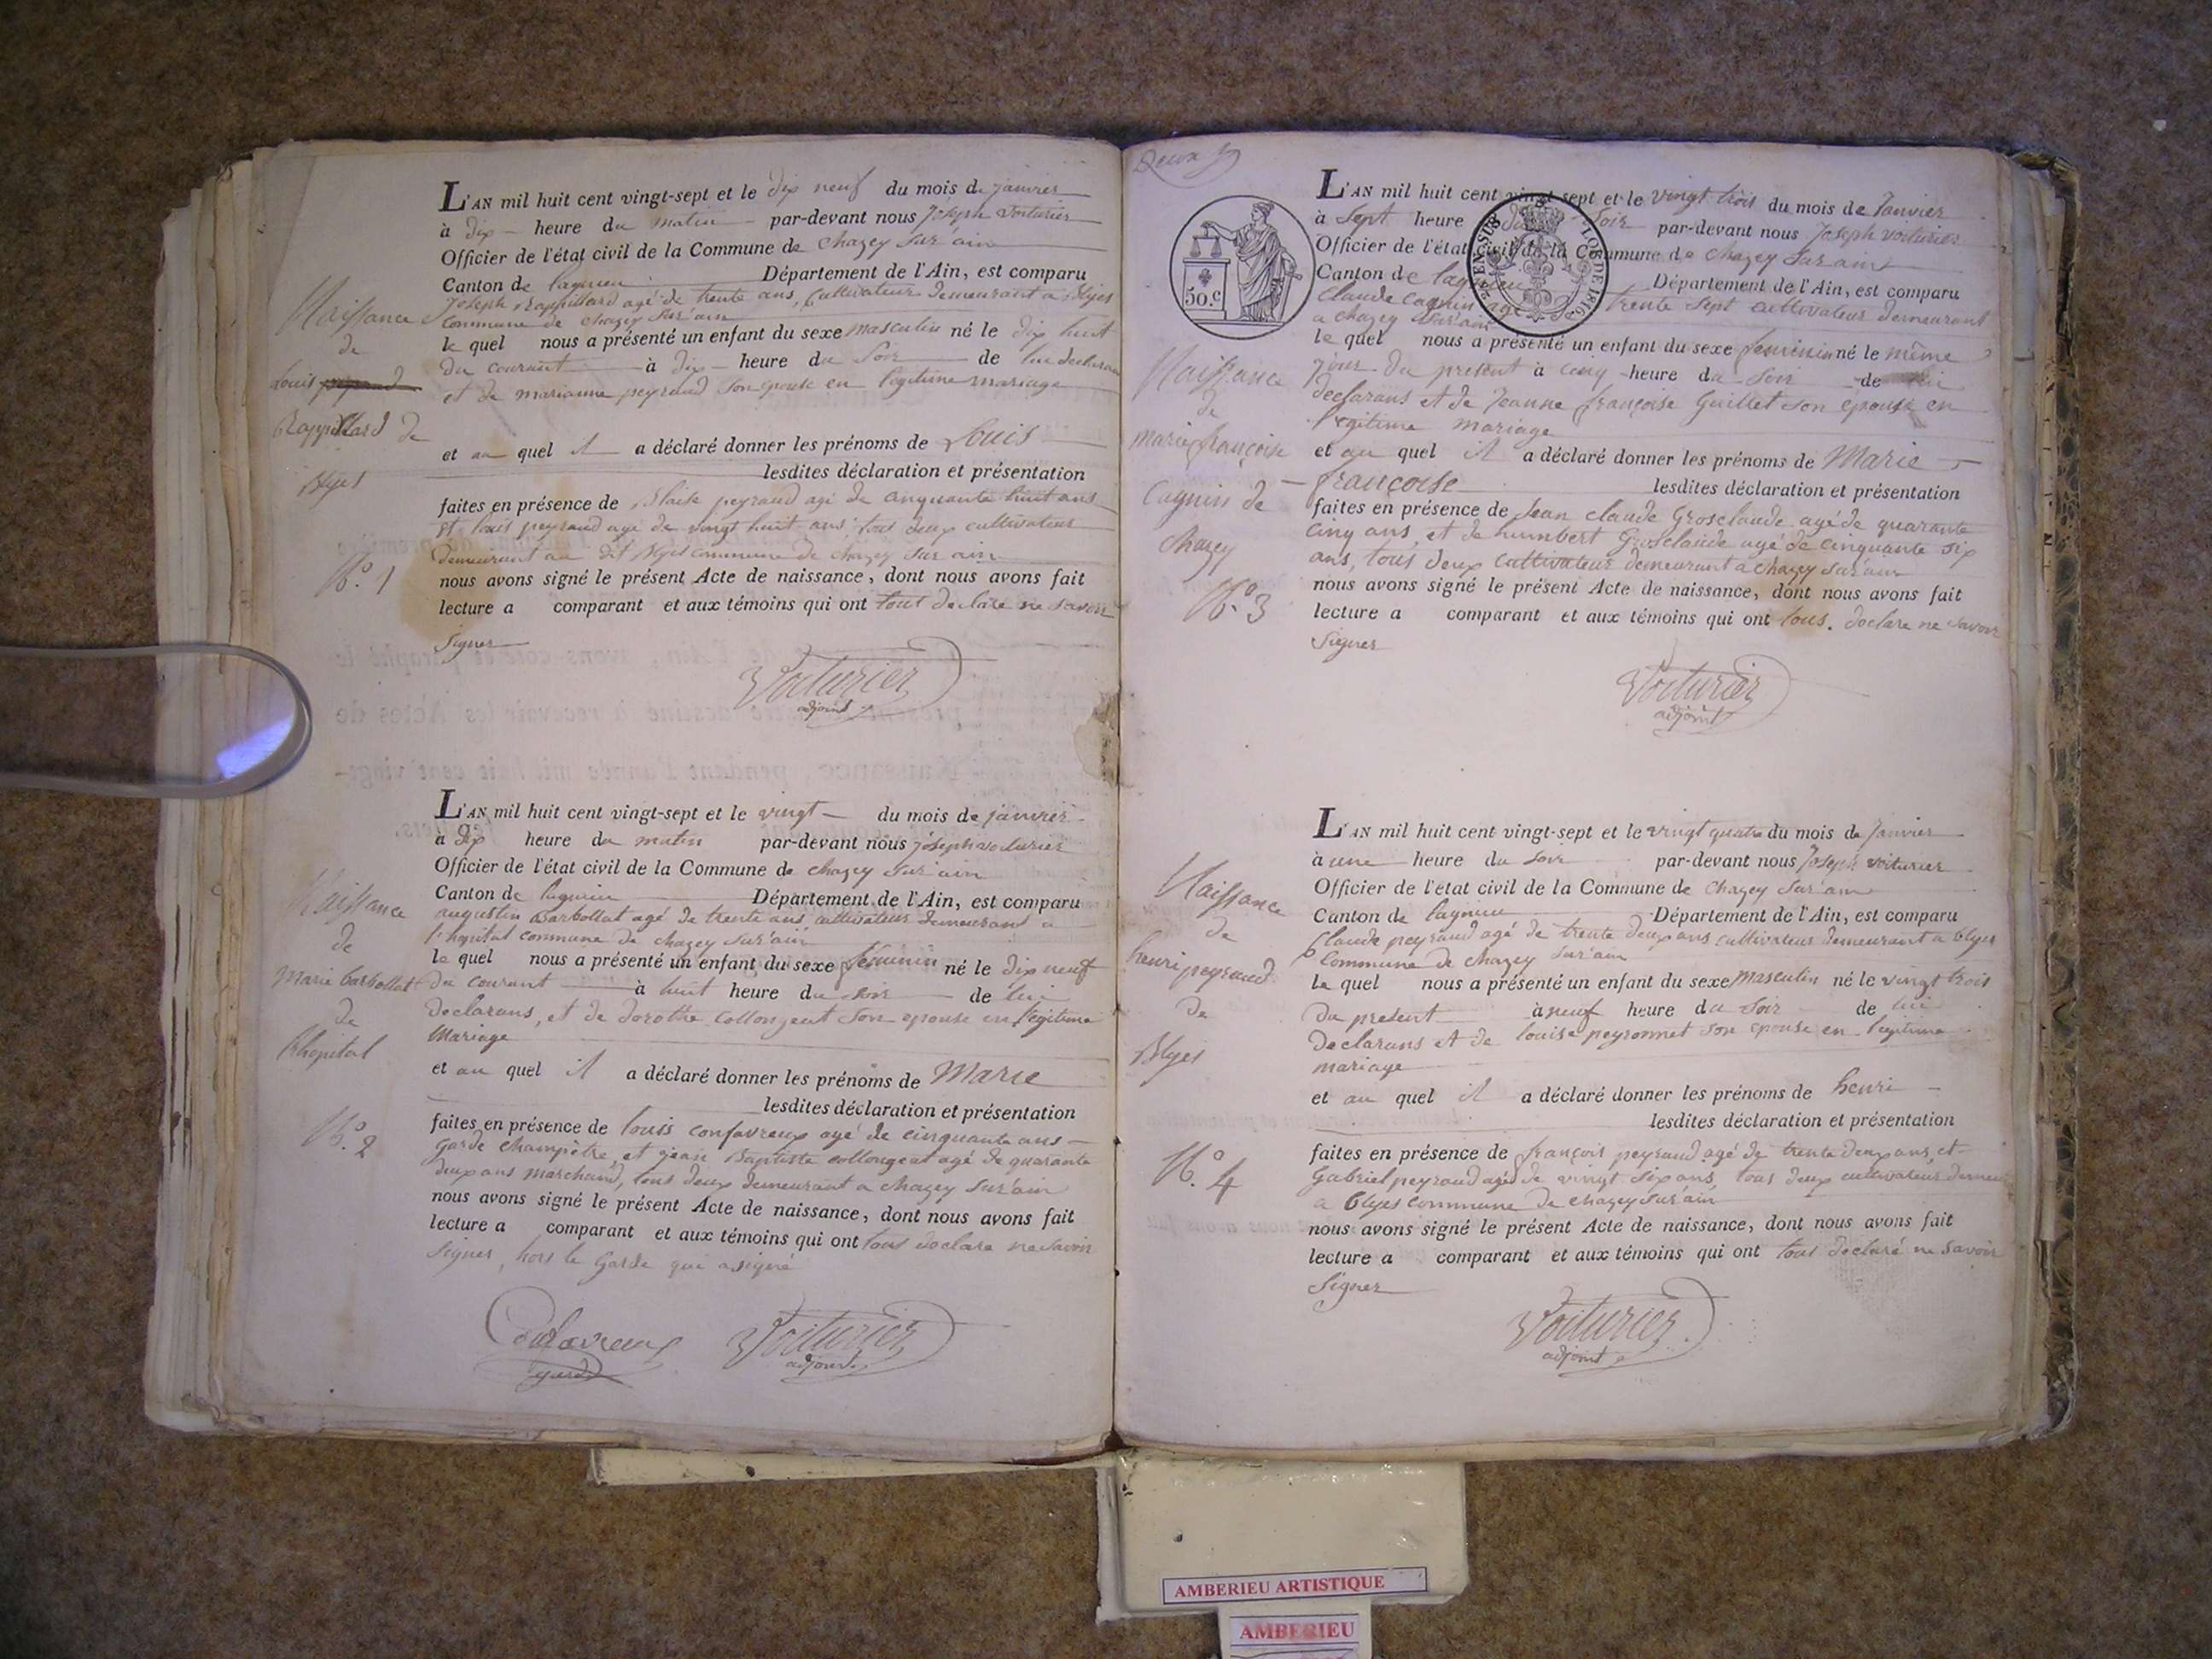 L'AN mil huit cent vingt-sept et le dix neuf du mois de janvier
à dix heure du matin par-devant nous Joseph Voiturier
Officier de l'état civil de la Commune de chazey sur ain
Canton de lagnieu Département de l'Ain, est comparu
Joseph Rappillard agé de trente ans, Cultivateur demeurant a Blyes
Commune de chazey sur ain
le quel nous a présenté un enfant du sexe masculin né le dix huit
du courant à dix heure du soir de lui declarans
et de marianne peyraud son epouse en legitime mariage
et au quel il a déclaré donner les prénoms de Louis
lesdites déclaration et présentation
faites en présence de Blaise peyraud agé de cinquante huit ans
et louis peyraud agé de vingt huit ans, tous deux cultivateur
demeurant au dit Blyes commune de chazey sur ain
nous avons signé le présent Acte de naissance, dont nous avons fait
lecture a comparant et aux témoins qui ont tout declaré ne savoir
signer
Voiturier
adjoint
Naissance
de
Louis
Rappillard de
Blyes
N.° 1
L'AN mil huit cent vingt-sept et le vingt du mois de janvier
a dix heure du matin par-devant nous joseph voiturier
Officier de l'état civil de la Commune de chazey sur ain
Canton de lagnieu Département de l'Ain, est comparu
augustin Barbollat agé de trente ans cultivateur demeurant a
l'hopital commune de chazey sur ain
le quel nous a présenté un enfant du sexe feminin né le dix neuf
du courant à huit heure du soir de lui
declarans, et de dorothe collongeat son epouse en legitime
mariage
et au quel il a déclaré donner les prénoms de Marie
lesdites déclaration et présentation
faites en présence de louis confavreux agé de cinquante ans
garde champêtre, et jean Baptiste collongeat agé de quarante
deux ans marchand, tous deux demeurant a chazey sur ain
nous avons signé le présent Acte de naissance, dont nous avons fait
lecture a comparant et aux témoins qui ont tous declaré ne savoir
signer, hors le garde qui a signé
Voiturier
garde adjoint
Naissance
de
Marie barbollat
de
l'hopital
N.° 2
Deux
50.c
24 EN SUS LOI DE 1816
L'AN mil huit cent vingt-sept et le vingt trois du mois de Janvier
à sept heure du soir par-devant nous Joseph voiturier
Officier de l'état civil de la Commune de chazey sur ain
Canton de lagnieu Département de l'Ain, est comparu
Claude Cagnin agé de trente sept cultivateur demeurant
a chazey sur ain
le quel nous a présenté un enfant du sexe feminin né le même
jour du present à cinq heure du soir de lui
declarans et de Jeanne françoise Guillet son epouse en
legitime mariage
et au quel il a déclaré donner les prénoms de Marie
françoise lesdites déclaration et présentation
faites en présence de Jean claude Grosclaude agé de quarante
cinq ans, et de humbert Grosclaude agé de cinquante six
ans, tous deux cultivateur demeurant a chazey sur ain
nous avons signé le présent Acte de naissance, dont nous avons fait
lecture a comparant et aux témoins qui ont tous declaré ne savoir
signer
Voiturier
adjoint
Naissance
de
marie françoise
Cagnin de
chazey
N.° 3
L'AN mil huit cent vingt-sept et le vingt quatre du mois de Janvier
à une heure du soir par-devant nous Joseph voiturier
Officier de l'état civil de la Commune de chazey sur ain
Canton de lagnieu Département de l'Ain, est comparu
Claude peyraud agé de trente deux ans cultivateur demeurant a blyes
commune de chazey sur ain
le quel nous a présenté un enfant du sexe masculin né le vingt trois
du present à neuf heure du soir de lui
declarans et de louise peyronnet son epouse en legitime
mariage
et au quel il a déclaré donner les prénoms de henri
lesdites déclaration et présentation
faites en présence de françois peyraud agé de trente deux ans et
Gabriel peyraud agé de vingt six ans, tous deux cultivateur
a blyes commune de chazey sur ain
nous avons signé le présent Acte de naissance, dont nous avons fait
lecture a comparant et aux témoins qui ont tout declaré ne savoir
signer
Voiturier
adjoint
Naissance
de
henri peyraud
de
Blyes
N.° 4
AMBERIEU ARTISTIQUE
AMBERIEU